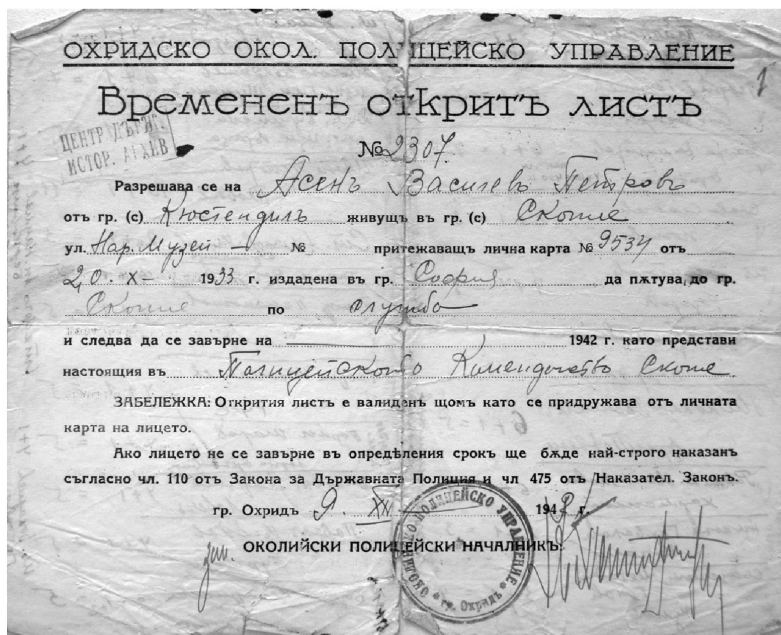 ОХРИДСКО ОКОЛ. ПОЛИЦЕЙСКО УПРАВЛЕНИЕ
Времененъ открить листъ
ЦЕНТР. ДЪРЖ.
ИСТОР. АРХИВ
№ 2307.
Разрешава се на Асенъ Василевъ Петровъ
отъ гр. (с) Кюстендилъ живущъ въ гр. (с) Скопие
ул. Нар. Музей — № притежаващъ лична карта № 9534 отъ
20. X — 1933 г. издадена въ гр. София да пѫтува до гр.
Скопие по служба
и следва да се завърне на 1942 г. като представи
настоящия въ Полицейското Комендантство Скопие
ЗАБЕЛЕЖКА: Открития листъ е валиденъ щомъ като се придружава отъ личната
карта на лицето.
Ако лицето не се завърне въ опредѣления срокъ ще бѫде най-строго наказан
съгласно чл. 110 отъ Закона за Държавната Полиция и чл 475 отъ Наказател. Законъ.
гр. Охридъ 9. XII 1942 г.
зам. ОКОЛИЙСКИ ПОЛИЦЕЙСКИ НАЧАЛНИКЪ:
ОКОЛИЙСКО ПОЛИЦЕЙСКО УПРАВЛЕНИЕ
гр. Охридъ